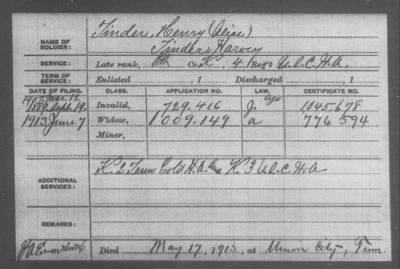 NAME OF SOLDIER: Tinder, Henry (Alias)
Tinder, Harvey
SERVICE: Late rank, Co. K, 4 Reg't U.S.C.H.A.
TERM OF SERVICE: Enlisted , 1 Discharged , 1
DATE OF FILING. CLASS. APPLICATION NO. LAW. CERTIFICATE NO.
1907 Mar. 12 Age
1889 Sept. 19. Invalid, 729.416 1045.678
1913 June 7 Widow, 1009.149 a 776 594
Minor,
ADDITIONAL SERVICES: K 2 Tenn Cold H.A. K 3 U.S.C.H.A
REMARKS:
Died May 17, 1913, at Union City, Tenn.